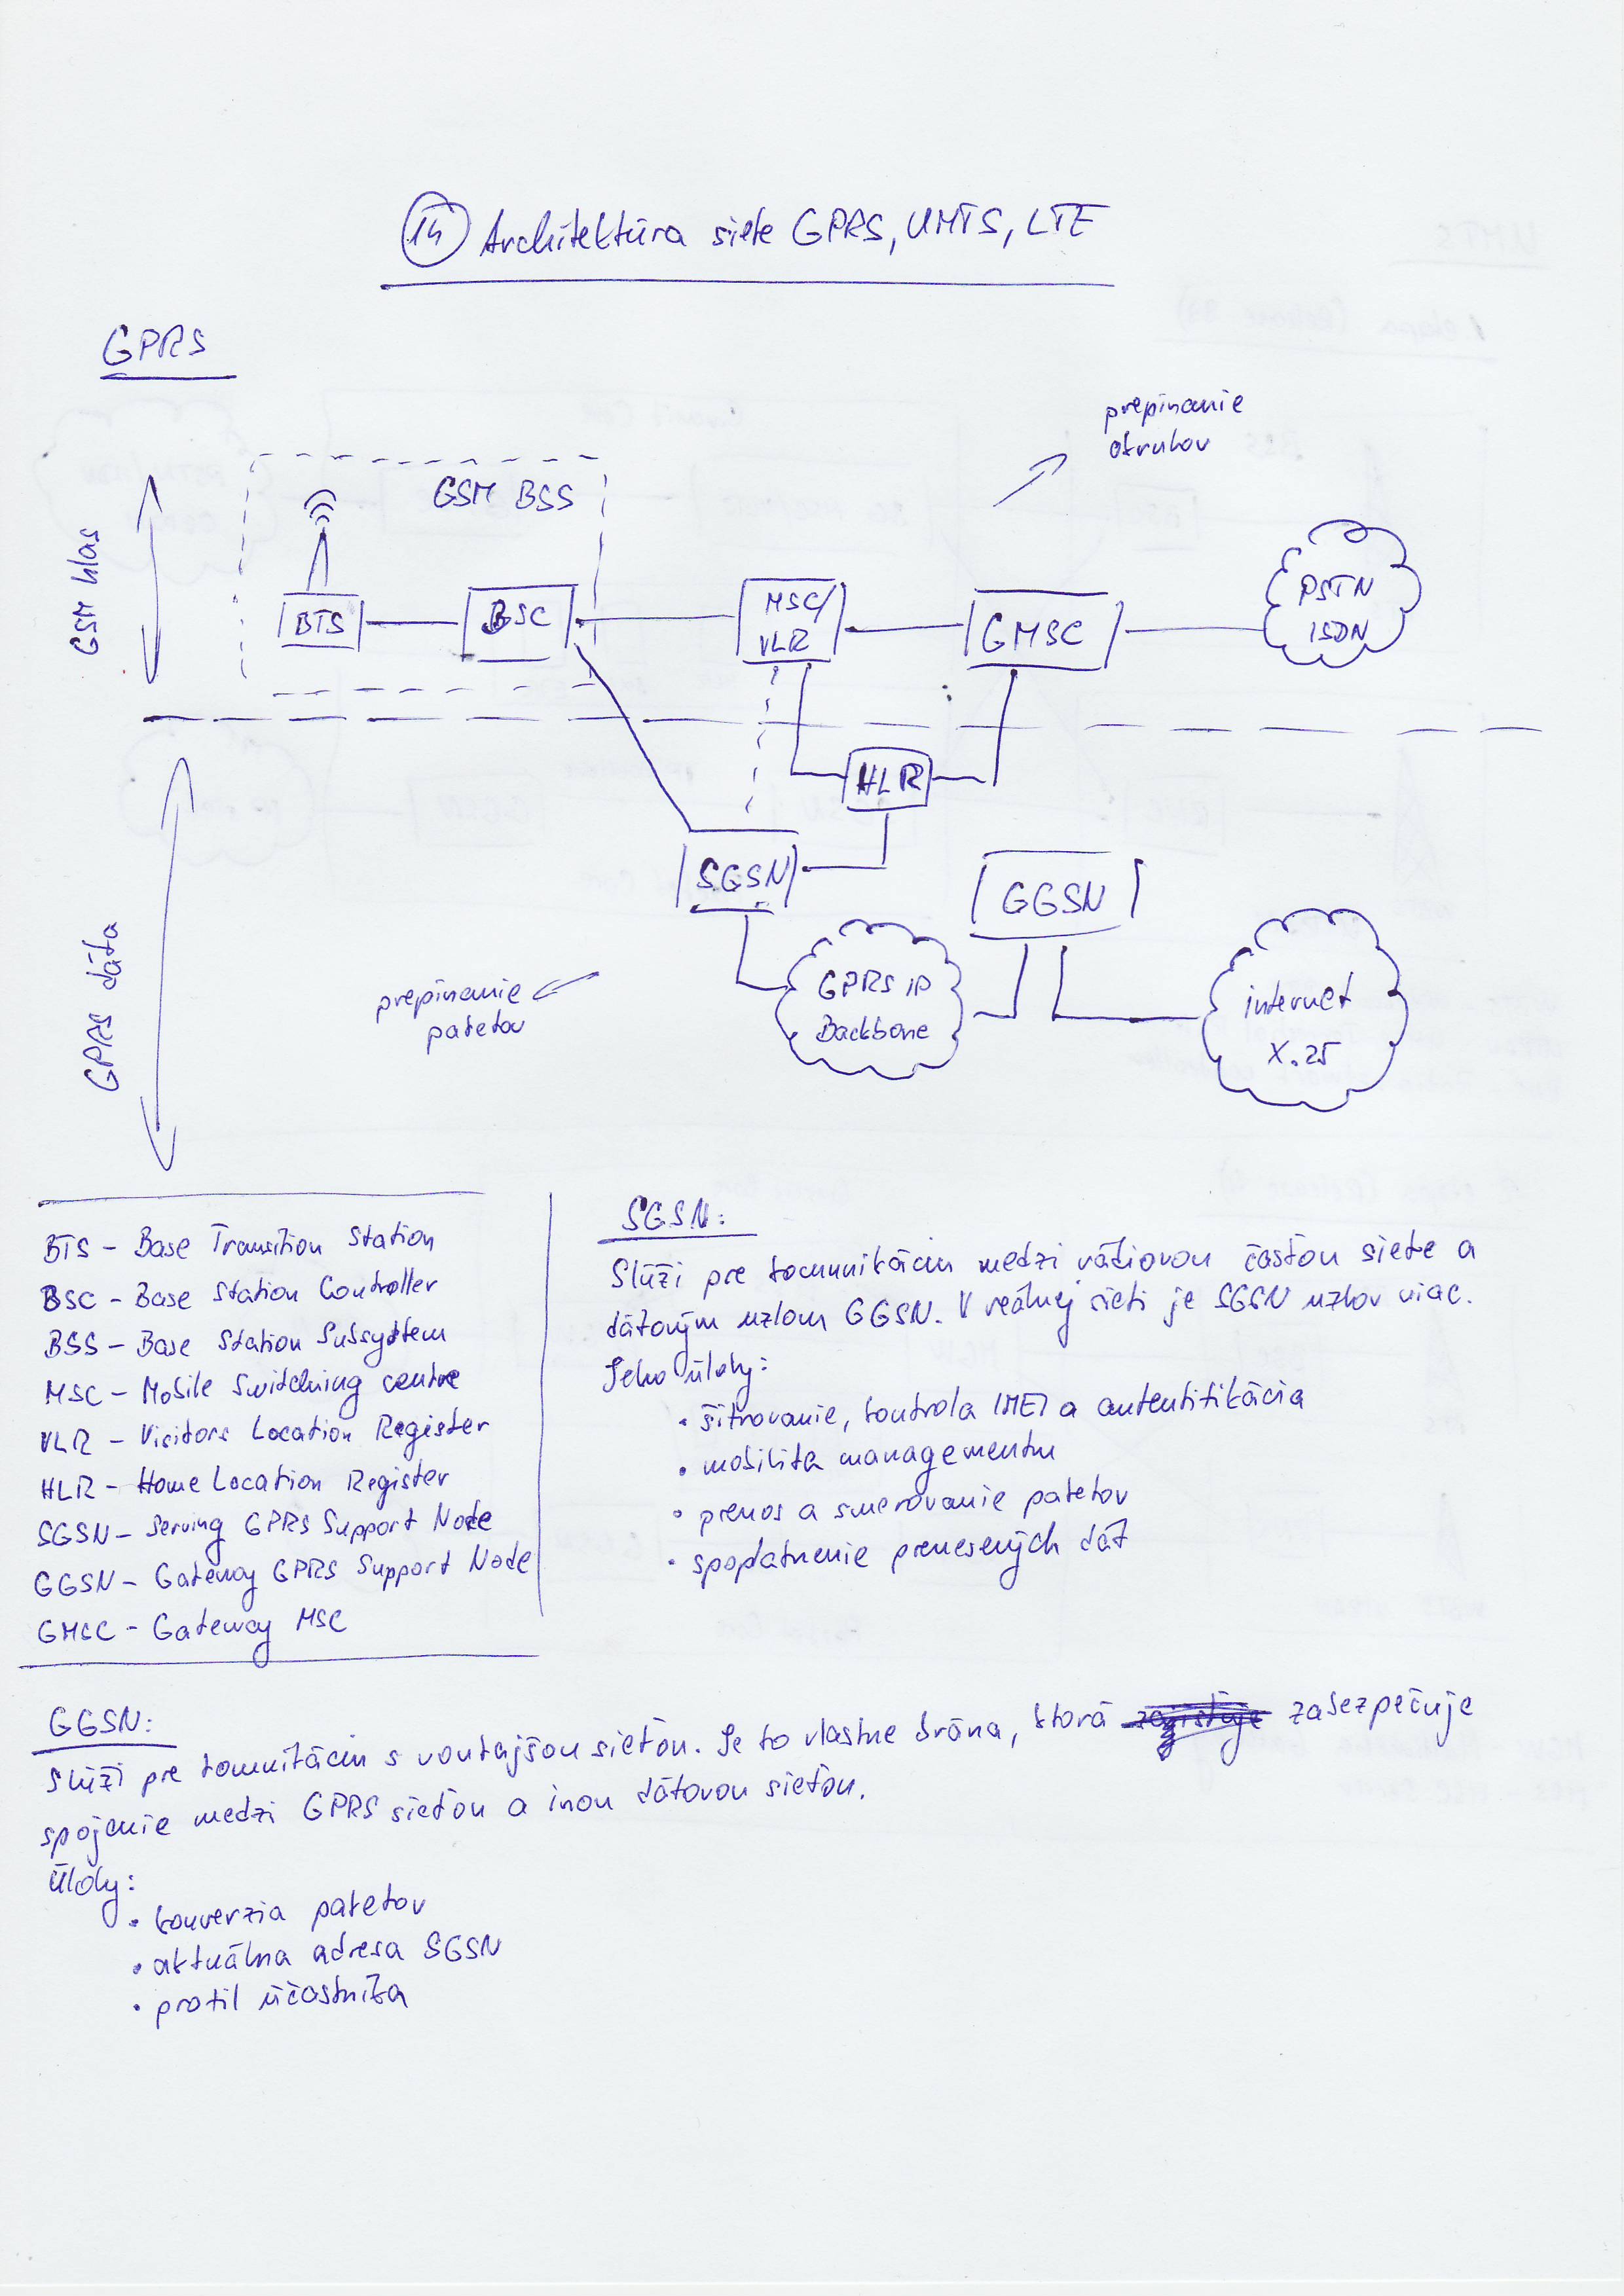 14 Architektúra siete GPRS, UMTS, LTE
GPRS
prepínanie
okruhov
GSM BSS
GSM hlas
BTS
BSC
MSC/
VLR
GMSC
PSTN
ISDN
HLR
SGSN
GGSN
GPRS dáta
prepínanie
paketov
GPRS IP
Backbone
internet
X.25
BTS - Base Transition Station
BSC - Base Station Controller
BSS - Base Station Subsystem
MSC - Mobile Switching centre
VLR - Visitors Location Register
HLR - Home Location Register
SGSN - Serving GPRS Support Node
GGSN - Gateway GPRS Support Node
GMSC - Gateway MSC
SGSN:
Slúži pre komunikáciu medzi rádiovou časťou siete a
dátovým uzlom GGSN. V reálnej sieti je SGSN uzlov viac.
Jeho úlohy:
• šifrovanie, kontrola IMEI a autentifikácia
• mobilita managementu
• prenos a smerovanie paketov
• spoplatnenie prenesených dát
GGSN:
Slúži pre komunikáciu s vonkajšou sieťou. Je to vlastne brána, ktorá zabezpečuje
spojenie medzi GPRS sieťou a inou dátovou sieťou.
Úlohy:
• konverzia paketov
• aktuálna adresa SGSN
• profil účastníka